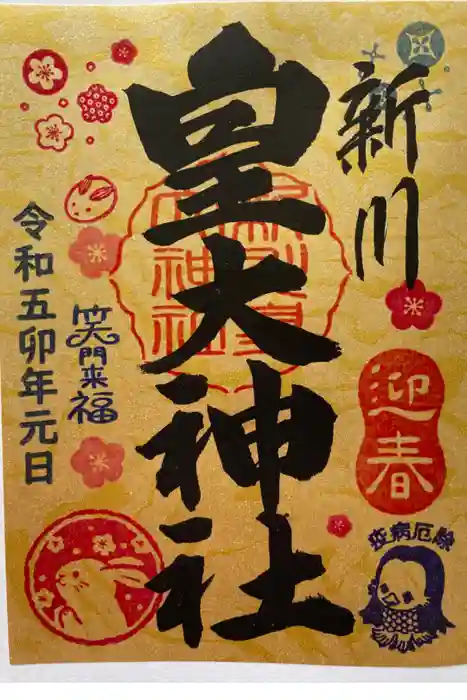 新川
皇大神社
迎春
疫病厄除
笑門来福
令和五卯年元日